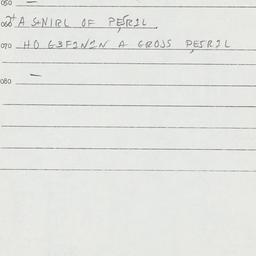 050 —
060 A S2NIRL OF PESRIL
070 HO G3F2N2N A GROSS PESRIL
080 —